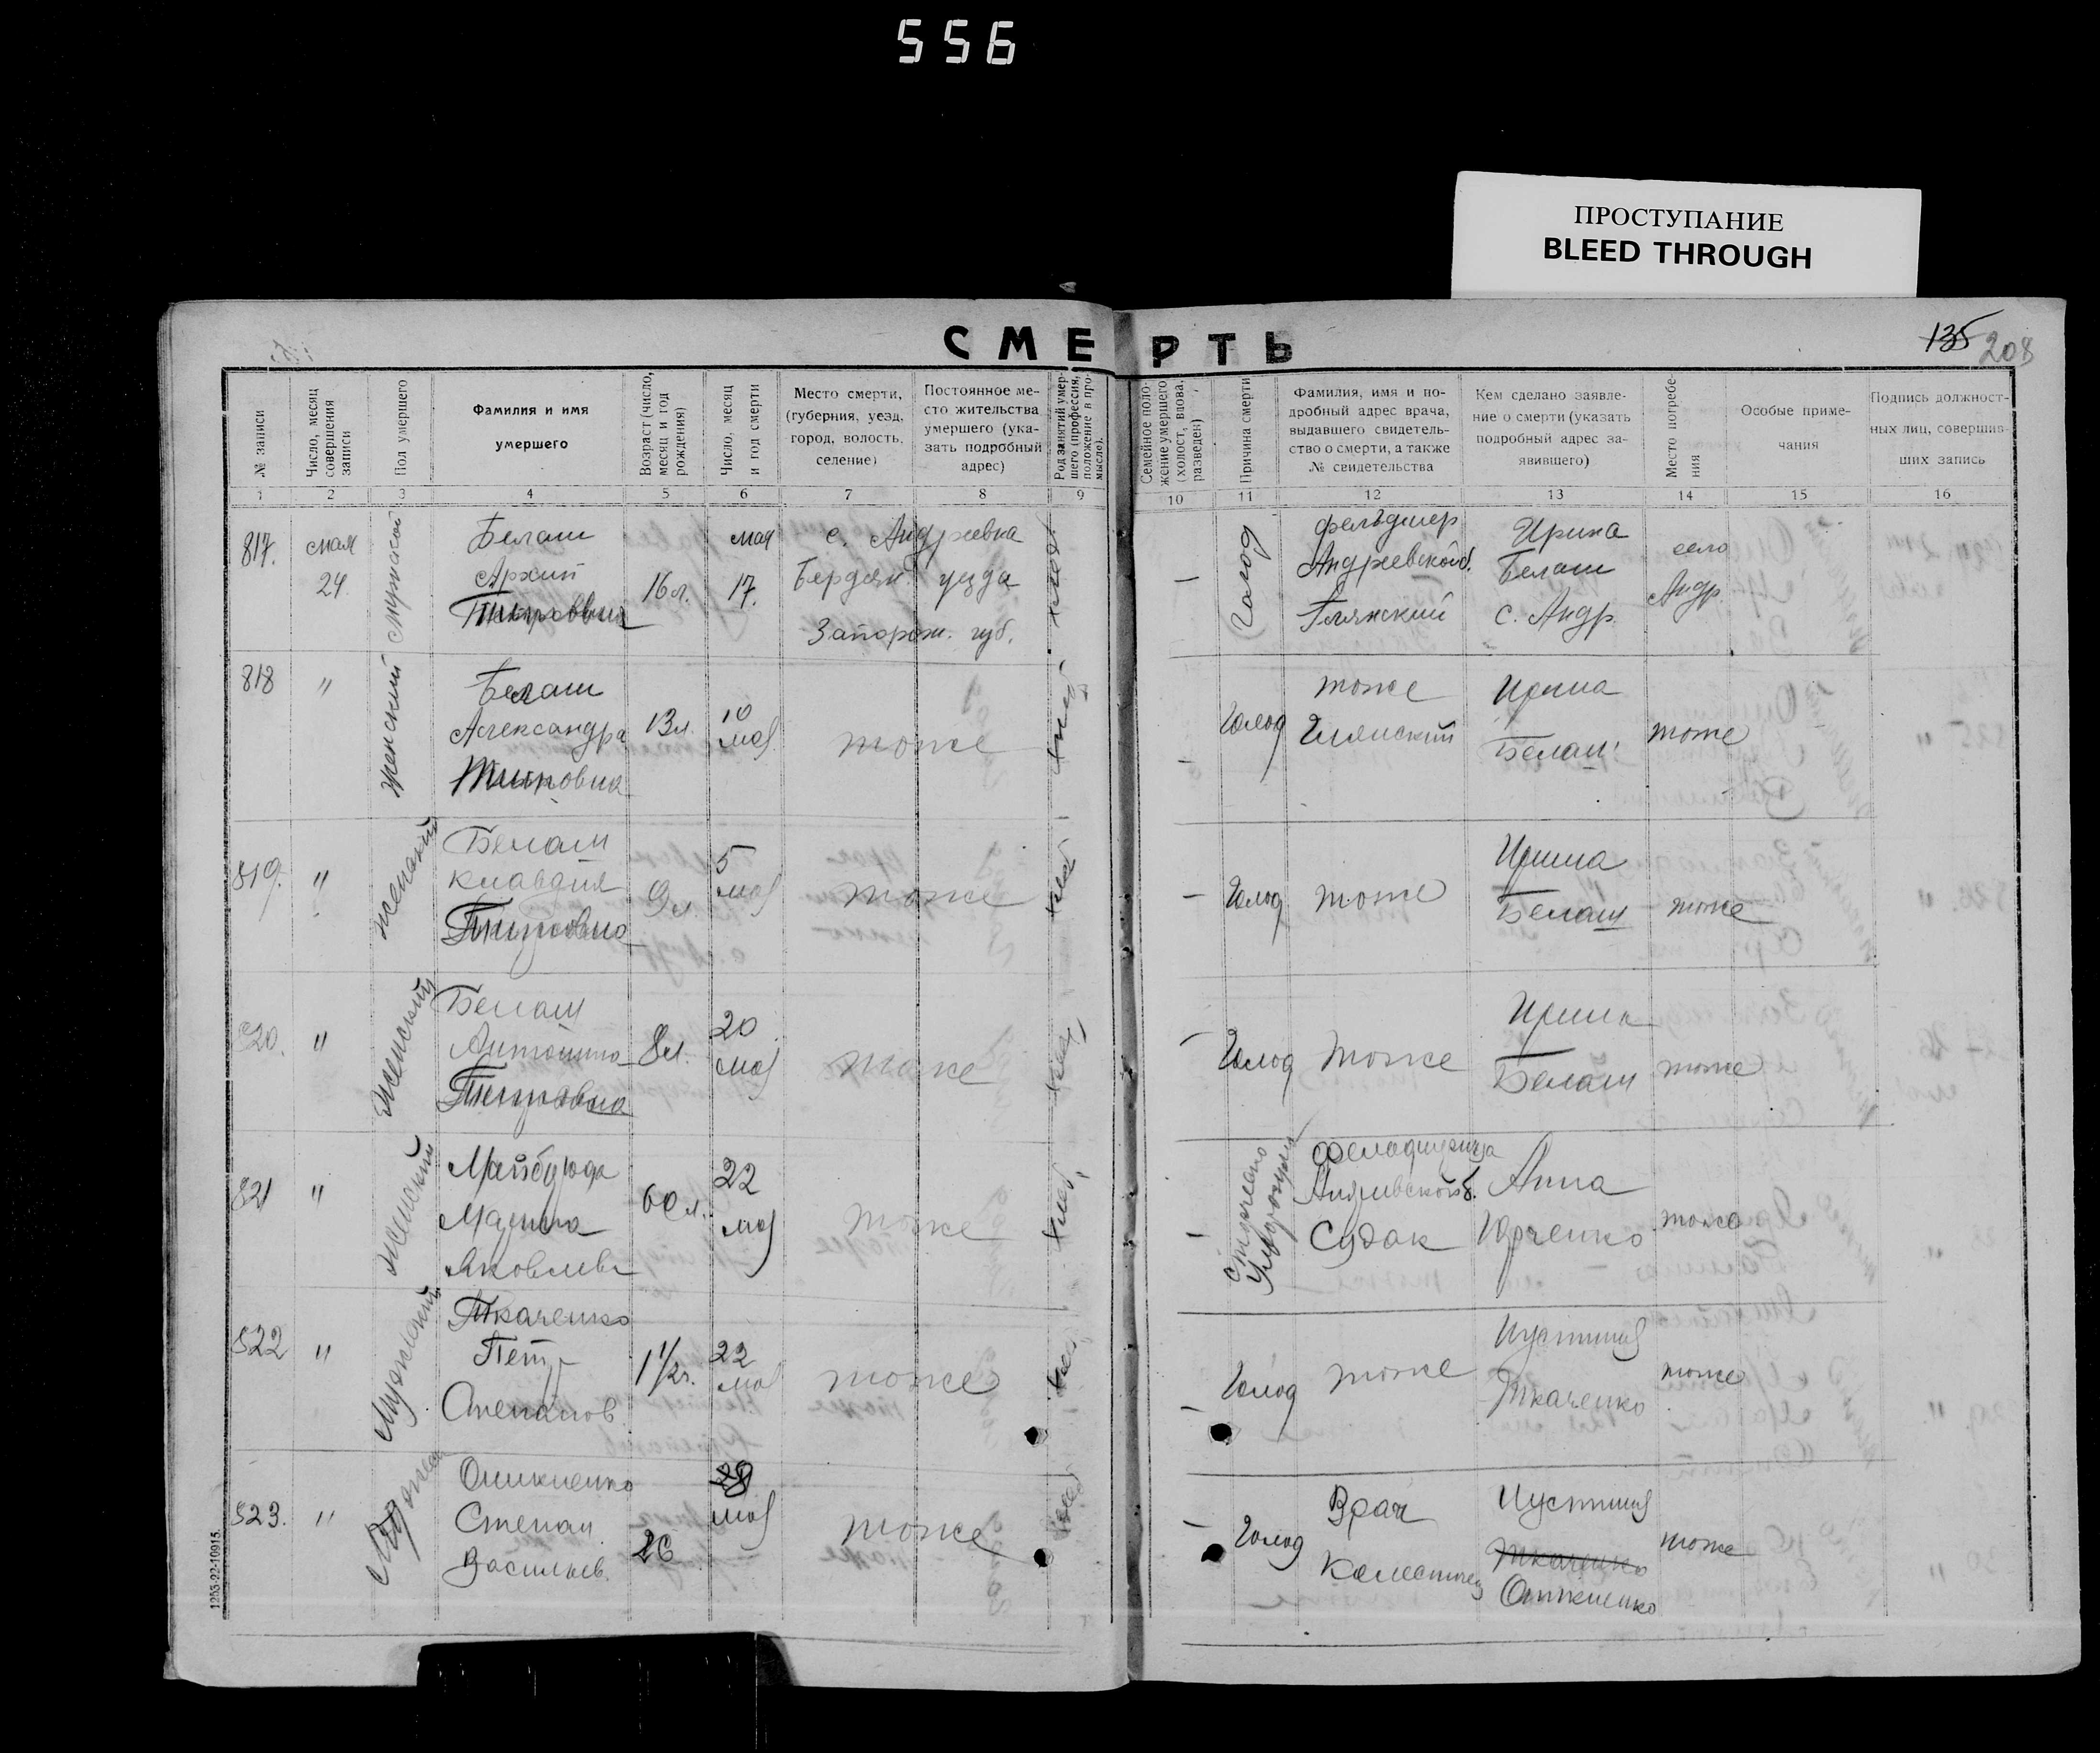 556
ПРОСТУПАНИЕ
BLEED THROUGH
СМЕРТЬ
135 208
№ записи
Число, месяц совершения записи
Пол умершего
Фамилия и имя умершего
Возраст (число, месяц и год рождения)
Число, месяц и год смерти
Место смерти, (губерния, уезд, город, волость, селение)
Постоянное место жительства умершего (указать подробный адрес)
Род занятий умершего (профессия, положение в промысле).
Семейное положение умершего (холост, вдова, разведен)
Причина смерти
Фамилия, имя и подробный адрес врача, выдавшего свидетельство о смерти, а также № свидетельства
Кем сделано заявление о смерти (указать подробный адрес заявившего)
Место погребения
Особые примечания
Подпись должностных лиц, совершивших запись
1 2 3 4 5 6 7 8 9 10 11 12 13 14 15 16
817. мая 24. мужской
Белаш
Архип
16 л. мая 17.
с. Андреевка
Бердян. уезда
Запорож. губ.
– Голод
фельдшер
Андреевской б.
Ирина
Белаш
с. Андр.
село
Андр.
818 " женский
Белаш
Александра
Титовна
13 л. 10 мая
тоже
– Голод
тоже
Ирина
Белаш
тоже
819. " женский
Белаш
Клавдия
Титовна
9 л. 5 мая
тоже
– Голод
тоже
Ирина
Белаш
тоже
820. " женский
Белаш
Антонина
Титовна
8 л. 20 мая
тоже
– Голод
тоже
Ирина
Белаш
тоже
821 " женский
Майборода
Марина
Яковлев
60 л. 22 мая
тоже
–
Андреевской б.
Судак
Анна
Юрченко
тоже
822 " мужской
Ткаченко
Петр
Степанов.
1 1/2 г. 22 мая
тоже
– Голод
тоже
Иустиния
Ткаченко
тоже
823. "
Оникиенко
Степан
Васильев.
26
мая
тоже
– Голод
Врач
Иустиния
Ткаченко
Оникиенко
тоже
1253-22-10915.